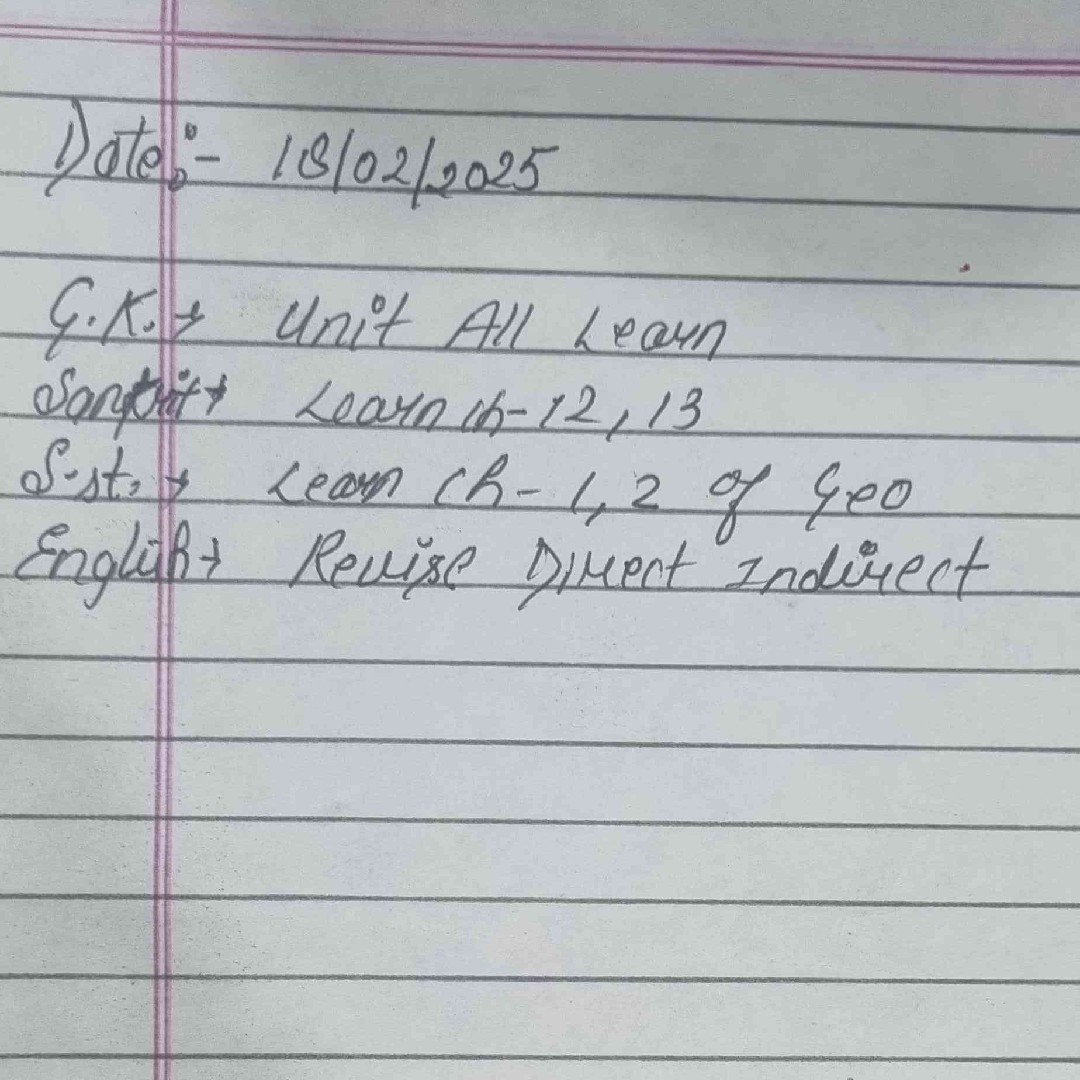 Date:- 18/02/2025
G.K. → Unit All Learn
Sanskrit → Learn ch-12, 13
S.st. → Learn Ch-1,2 of Geo
English → Revise Direct Indirect